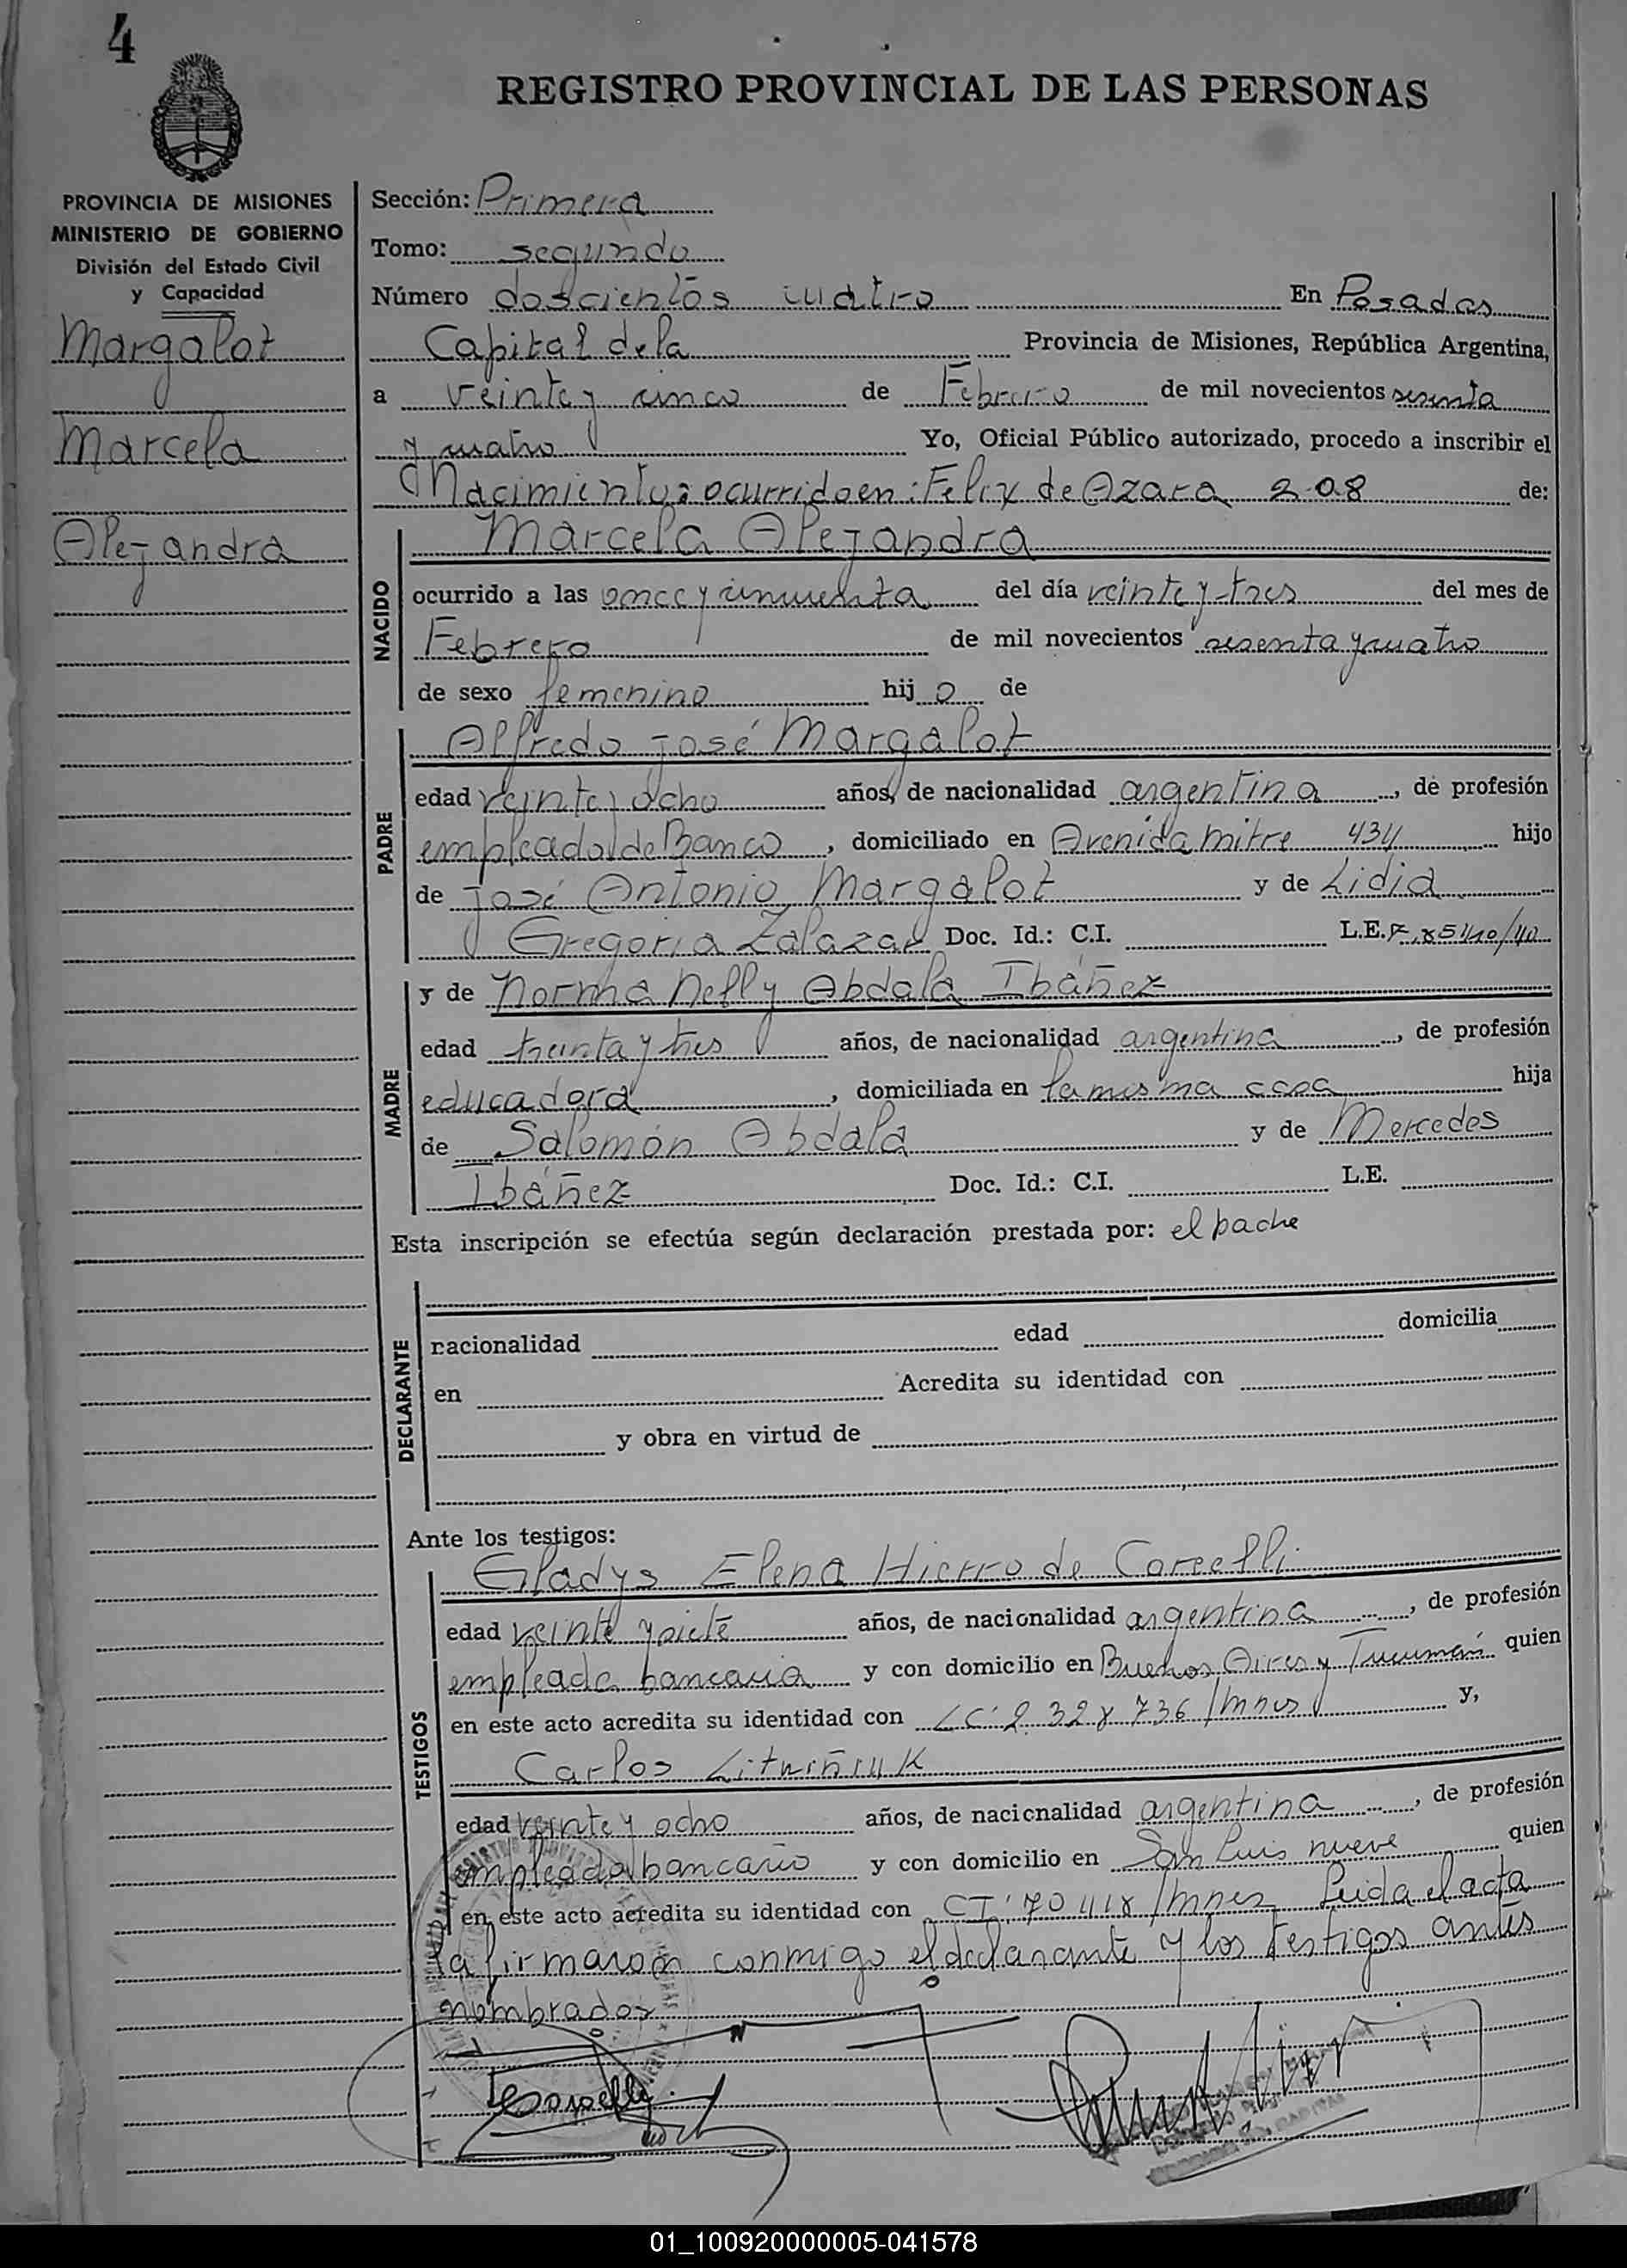 4
REGISTRO PROVINCIAL DE LAS PERSONAS
PROVINCIA DE MISIONES
MINISTERIO DE GOBIERNO
División del Estado Civil
y Capacidad
Margalot
Marcela
Alejandra
Sección: Primera
Tomo: segundo
Número doscientos cuatro En Posadas
Capital de la Provincia de Misiones, República Argentina,
a veinte y cinco de Febrero de mil novecientos sesenta
y cuatro Yo, Oficial Público autorizado, procedo a inscribir el
Nacimiento: ocurrido en: Felix de Azara 208 de:
NACIDO
Marcela Alejandra
ocurrido a las once y cincuenta del día veinte y tres del mes de
Febrero de mil novecientos sesenta y cuatro
de sexo femenino hij a de
PADRE
Alfredo José Margalot
edad veinte y ocho años, de nacionalidad argentina, de profesión
empleado de Banco, domiciliado en Avenida Mitre 434 hijo
de José Antonio Margalot y de Lidia
Gregoria Zalazar Doc. Id.: C.I. L.E.
MADRE
y de Norma Nelly Abdala Ibáñez
edad treinta y tres años, de nacionalidad argentina, de profesión
educadora, domiciliada en la misma casa hija
de Salomón Abdala y de Mercedes
Ibáñez Doc. Id.: C.I. L.E.
Esta inscripción se efectúa según declaración prestada por: el padre
DECLARANTE
nacionalidad edad domicilia
en Acredita su identidad con
y obra en virtud de
Ante los testigos:
TESTIGOS
Gladys Elena Hierro de
edad veinte y siete años, de nacionalidad argentina, de profesión
empleada bancaria y con domicilio en Buenos Aires y Tucumán quien
en este acto acredita su identidad con LC. y,
Carlos
edad veinte y ocho años, de nacionalidad argentina, de profesión
empleado bancario y con domicilio en San Luis nueve quien
en este acto acredita su identidad con CI. Leida el acta
la firmaron conmigo el declarante y los testigos antes
nombrados
01_100920000005-041578